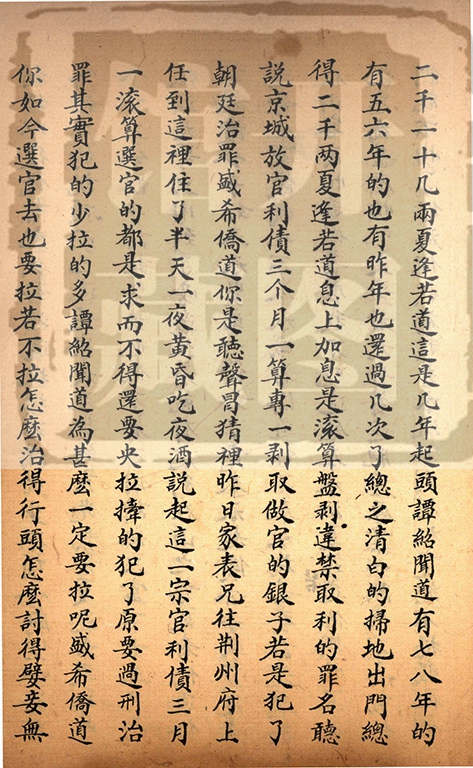 二千一十几兩夏逢若道這是几年起頭譚紹聞道有七八年的
有五六年的也有昨年也還過几次了總之清白的掃地出門總
得二千两夏逢若道息上加息是滚算盤剥違禁取利的罪名聽
說京城放官利債三个月一算專一剥取做官的銀子若是犯了
朝廷治罪盛希僑道你是聽聲冒猜裡昨日家表兄往荆州府上
任到這裡住了半天一夜黄昏吃夜酒說起這一宗官利債三月
一滚算選官的都是求而不得還要央拉擡的犯了原要過刑治
罪其實犯的少拉的多譚紹聞道為甚麼一定要拉呢盛希僑道
你如今選官去也要拉若不拉怎麼治得行頭怎麼討得嬖妾無